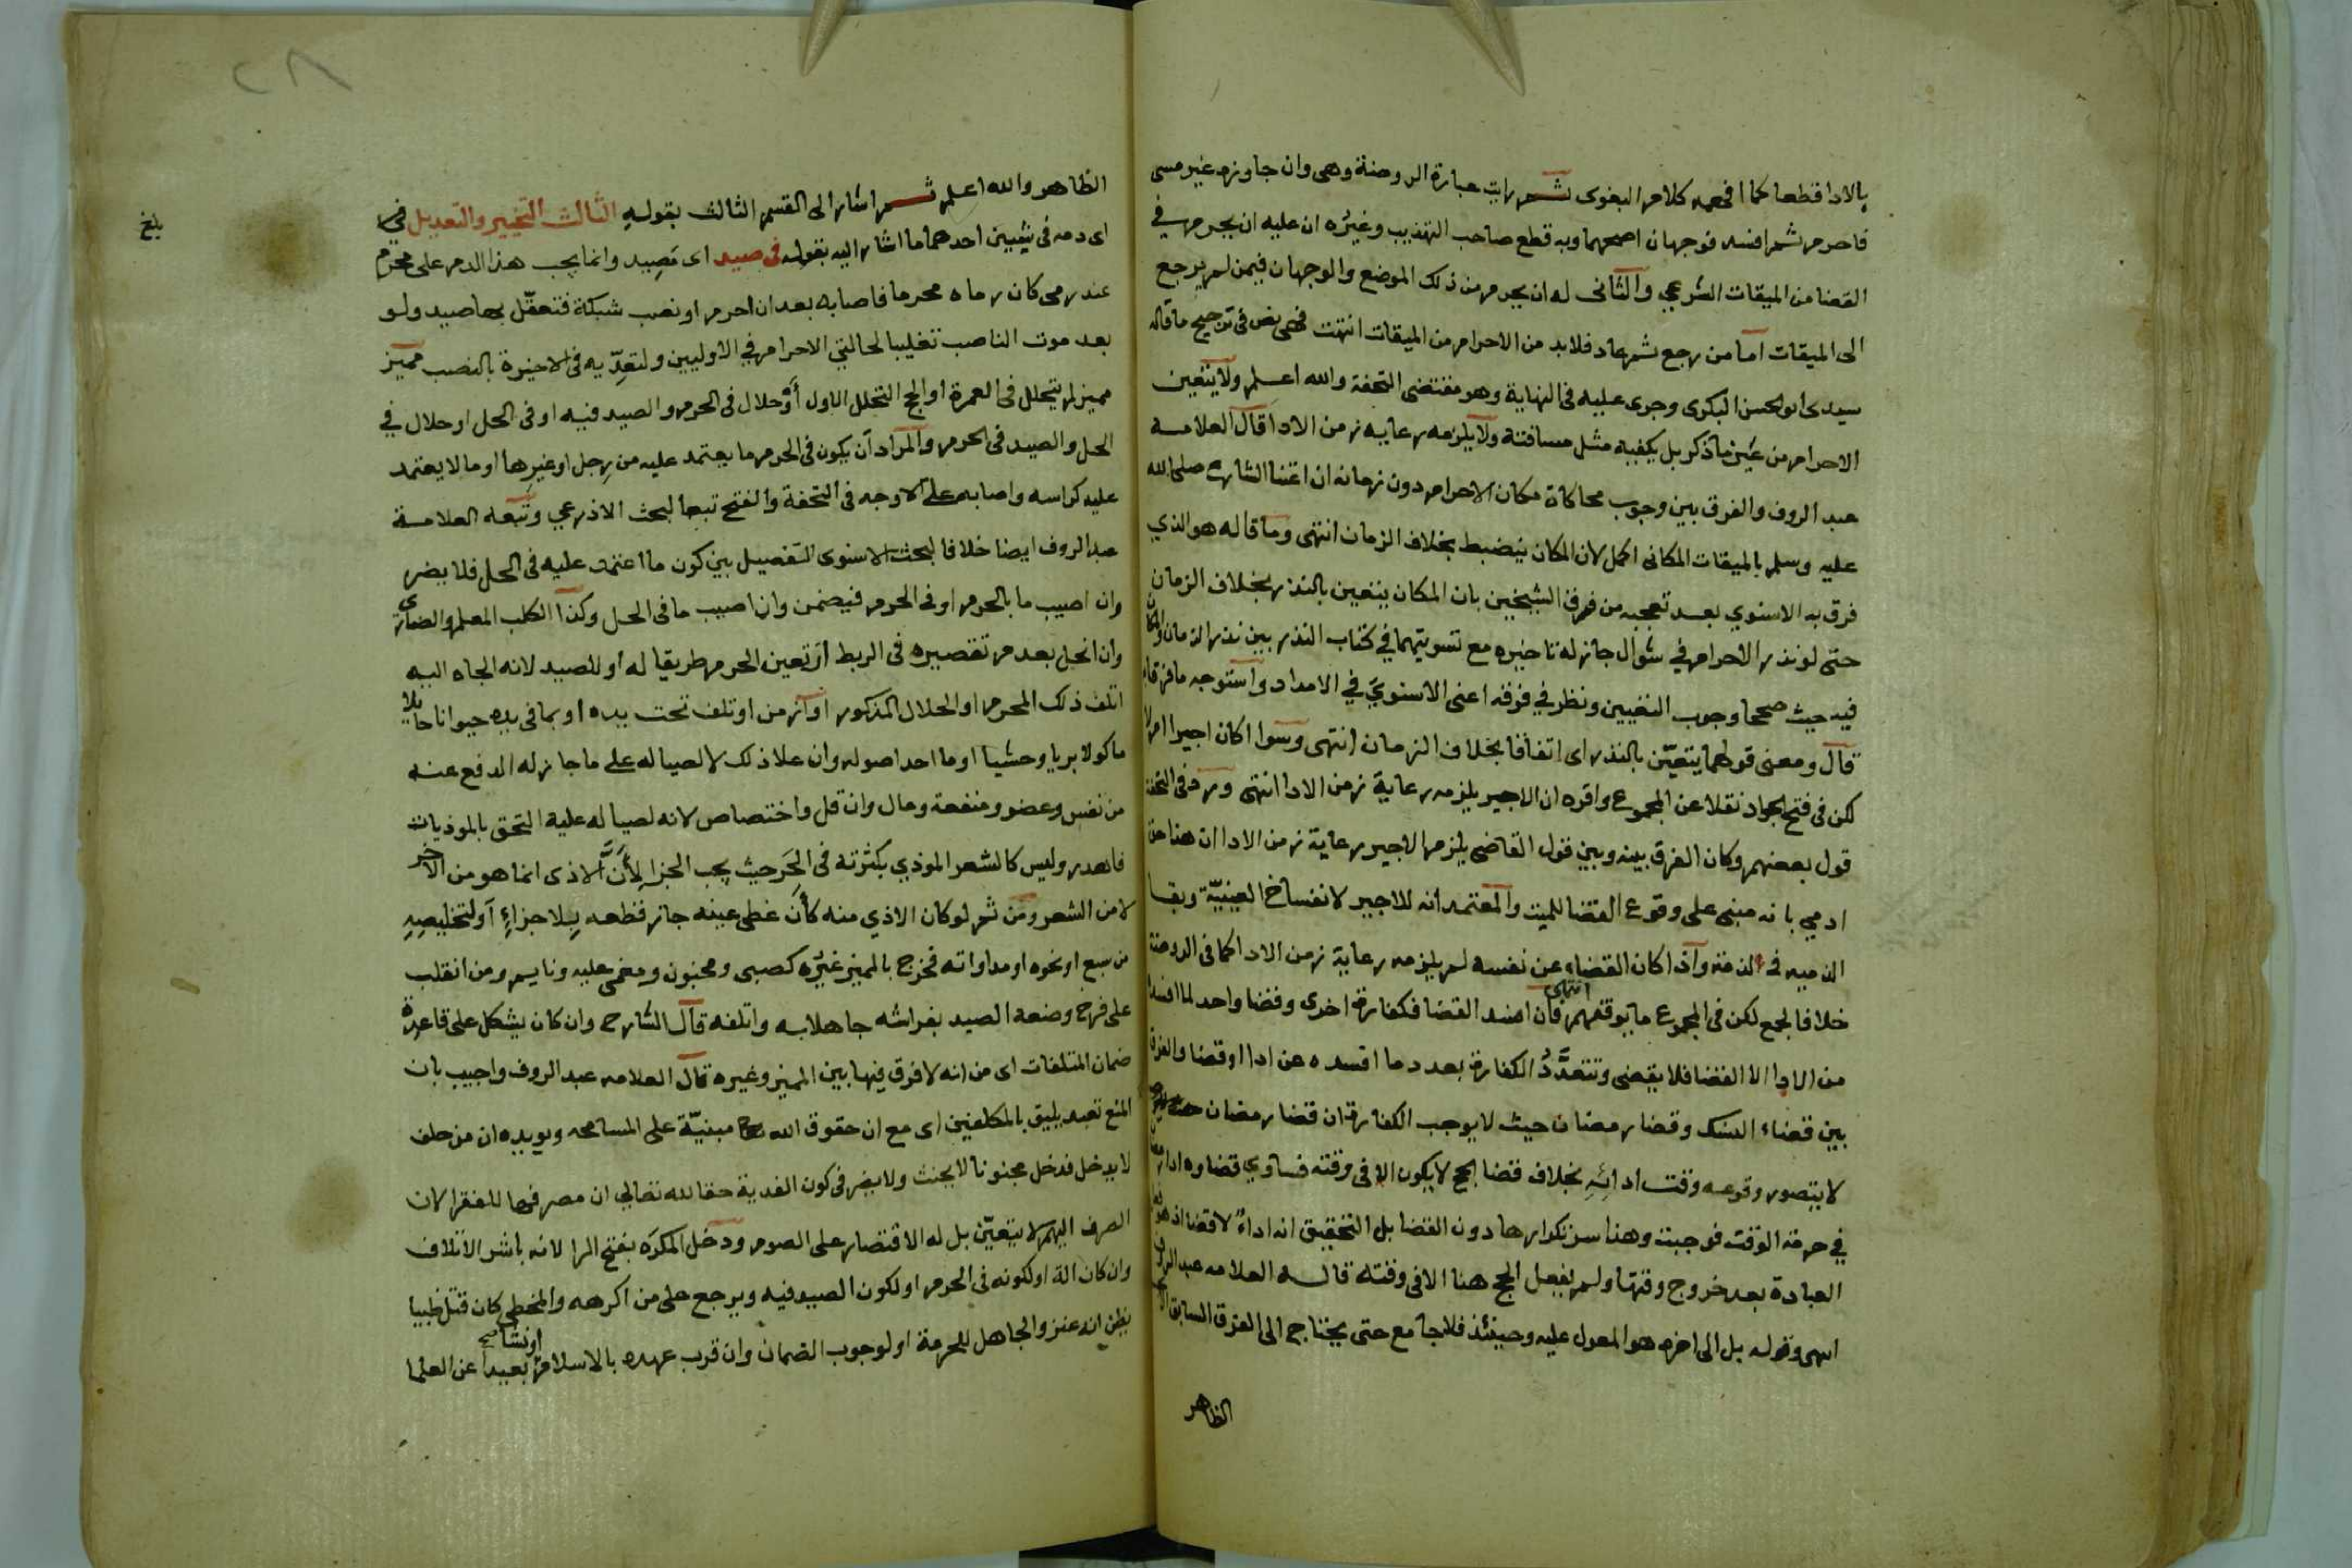 بالادا قطعا كما افهمه كلام البغوى ثم رايت عبارة الروضة وهى وان جاوزه غير مسى
فاحرم ثم افسد فوجهان اصحهما وبه قطع صاحب التهذيب وغيره ان عليه ان يحرم في
القضا من الميقات الشرعي والثانى له ان يحرم من ذلك الموضع والوجهان فيمن لم يرجع
الى الميقات اما من رجع ثم عاد فلابد من الاحرام من الميقات انتهت فهى نص فى ترجيح ما قاله
سيدى ابو الحسن البكرى وجرى عليه فى النهاية وهو مقتضى التحفة والله اعلم ولا يتعين
الاحرام من عين ما ذكر بل يكفيه مثل مسافته ولا يلزمه رعايه زمن الادا قال العلامه
عبد الروف والفرق بين وجوب محاكاة مكان الاحرام دون زمانه ان اعتنا الشارع صلى الله
عليه وسلم بالميقات المكانى اكمل لان المكان ينضبط بخلاف الزمان انتهى وما قاله هو الذي
فرق به الاسنوي بعد تعجبه من فرق الشيخين بان المكان يتعين بالنذر بخلاف الزمان
حتى لو نذر الاحرام في شوال جاز له تاخيره مع تسويتهما في كتاب النذر بين نذر الزمان والمكان
فيه حيث صححا وجوب التعيين ونظر في فرقه اعنى الاسنوي في الامداد واستوجه ما فرقا به
قال ومعنى قولهما يتعيّن بالنذر اى اتفاقا بخلاف الزمان انتهى وسوا اكان اجيرا ام لا
لكن فى فتح الجواد نقلا عن المجموع واقره ان الاجير يلزمه رعاية زمن الادا انتهى ورد فى التحفة
قول بعضهم وكان الفرق بينه وبين قول القاضى يلزم الاجير رعاية زمن الادا ان هنا حق
ادمي بانه مبنى على وقوع القضا للميت والمعتمد انه للاجير لانفساخ العينيّة وبقا
الذميه فى الذمة واذا كان القضاء عن نفسه لم يلزمه رعاية زمن الادا كما فى الروضة
خلافا لجمع لكن فى المجموع ما يوقفهم انتهى فان افسد القضا فكفارة اخرى وقضا واحد لما افسد
من الادا الا القضا فلا يقضى وتتعدَّدُ الكفارة بعدد ما افسده عن ادا او قضا والفرق
بين قضاء النسك وقضا رمضان حيث لا يوجب الكفارة ان قضا رمضان
لا يتصور وقوعه وقت ادائه بخلاف قضا الحج لا يكون الا فى وقته فساوي قضاوه اداه
في حرمة الوقت فوجبت وهنا سر تكرارها دون القضا بل التحقيق انه اداءٌ لا قضا اذ هو
العبادة بعد خروج وقتها ولم يفعل الحج هنا الا فى وقته قاله العلامه عبد الروف
انتهى وقوله بل الى اخره هو المعول عليه وحينئذ فلا جامع حتى يحتاج الى الفرق السابق
الظاهر
الظاهر والله اعلم ثم اشار الى القسم الثالث بقوله الثالث التخيير والتعديل في
اى دمه فى شيين احدهما ما اشار اليه بقوله فى صيد اى تَصيِد وانما يجب هذا الدم على محرم
عند رمى كان رماه محرما فاصابه بعد ان احرم او نصب شبكة فتعقّل بها صيد ولو
بعد موت الناصب تغليبا لحالتي الاحرام في الاوليين ولتعدّيه فى الاخيرة بالنصب مميز
مميز لم يتحلل فى العمرة او الحج التحلل الاول أو حلال فى الحرم والصيد فيه او فى الحل او حلال في
الحل والصيد فى الحرم والمراد ان يكون فى الحرم ما يعتمد عليه من رِجل او غيرها او ما لا يعتمد
عليه كراسه واصابه على الاوجه فى التحفة والفتح تبعا لبحث الاذرعي وتبعه العلامة
عبد الروف ايضا خلافا لبحث الاسنوى التفصيل بين كون ما اعتمد عليه فى الحل فلا يضر
وان اصيب ما بالحرم او فى الحرم فيضمن وان اصيب ما فى الحل وكذا الكلب المعلم والضارى
وان انحل بعد م تقصيره فى الربط ان تعين الحرم طريقا له او للصيد لانه الجاه اليه
اتلف ذلك المحرم او الحلال المذكور او ازمن او تلف تحت يده او بما فى يده حيوانا حايلا
ماكولا بريا وحشيا او ما احد اصوله وان علا ذلك لا لصياله على ما جاز له الدفع عنه
من نفس وعضو ومنفعة ومال وان قل واختصاص لانه لصياله عليه التحق بالموذيات
فاهدر وليس كالشعر الموذي بكثرته فى الحَر حيث يجب الجزا لِأَنَّ الاذى انما هو من الاخر
لا من الشعر ومن ثم لو كان الاذي منه كأَن غطى عينه جاز قطعه بِلا جزاءٍ او لتخليصِهِ
من سبع او نحوه او مداواته فخرج بالمميز غيرُه كصبى ومجنون ومغمى عليه ونايم ومن انقلب
على فرخ وضعه الصيد بفراشه جاهلا به واتلفه قال الشارح وان كان يشكل على قاعدة
ضمان المتلفات اى من انه لا فرق فيها بين المميز وغيره قال العلامه عبد الروف واجيب بان
المنع تعبد يليق بالمكلفين اى مع ان حقوق الله مبنيّة على المسامحه ويويده ان من حلف
لا يدخل فدخل مجنونا لا يحنث ولا يضر فى كون الفدية حقا لله تعالى ان مصرفها للفقرا لان
الصرف اليهم لا يتعيّن بل له الاقتصار على الصوم ودخل المكرَه بفتح الرا لانه باشر الاتلاف
وان كان الة او لكونه فى الحرم او لكون الصيد فيه ويرجع على من اكرهه والمخطى كان قتل ظبيا
يظن انه عنز والجاهل للحرمة او لوجوب الضمان وان قرب عهده بالاسلام او نشا بعيدا عن العلما
بلغ